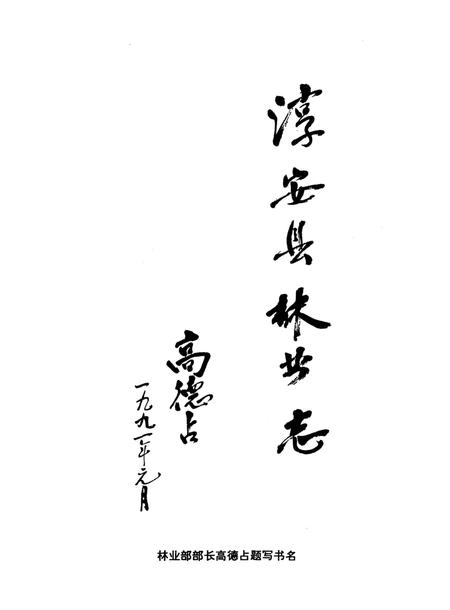 淳安县林业志
高德占
一九九一年元月
林业部部长高德占题写书名